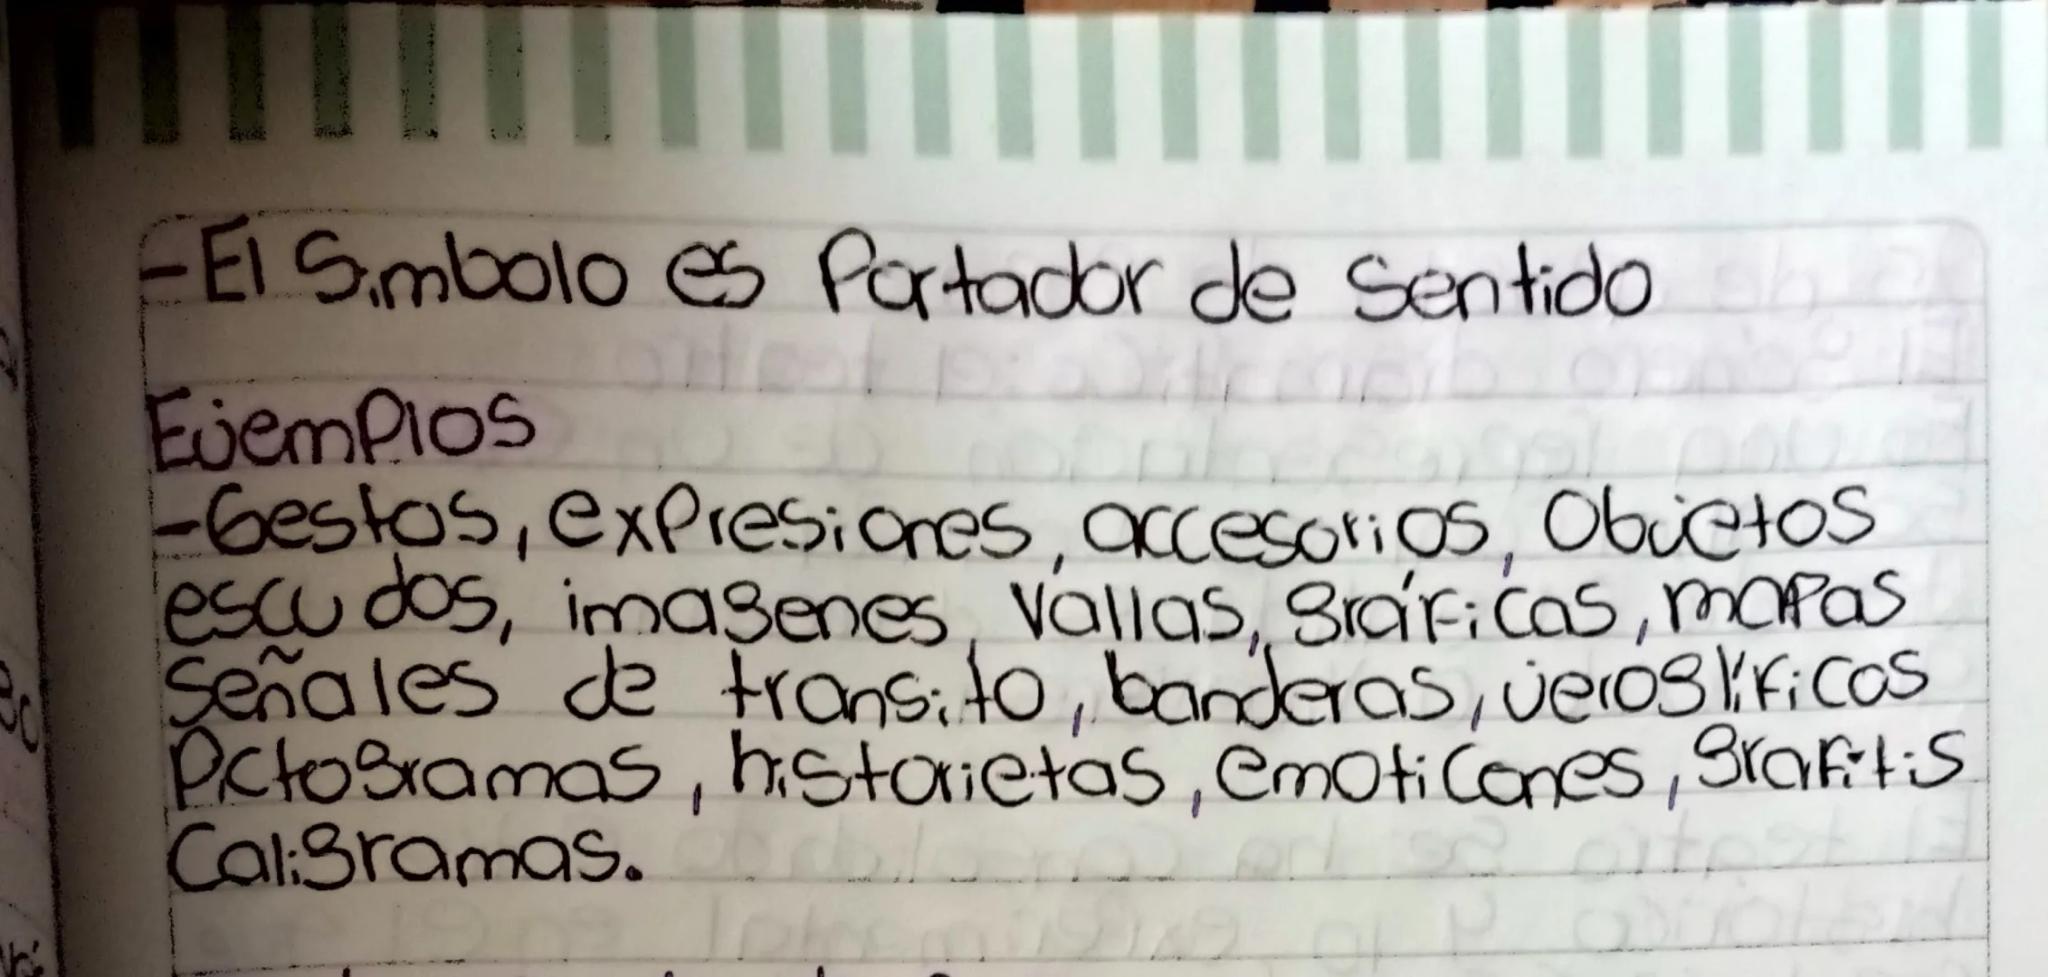 - El Simbolo es Portador de Sentido
Ejemplos
- Gestos, expresiones, accesorios, Objetos
escudos, imagenes, vallas, gráficas, mapas
Señales de transito, banderas, jeroglíficos
Pictogramas, historietas, emoticones, grafitis
Caligramas.